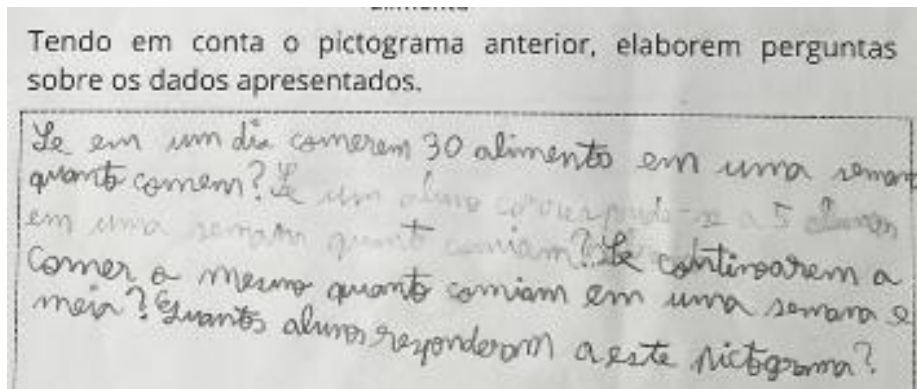 Tendo em conta o pictograma anterior, elaborem perguntas
sobre os dados apresentados.
Se em um dia comerem 30 alimento em uma seman
quanto comem? Se um aluno corresponde-se a 5 alunos
em uma semana quanto comiam? Se continoarem a
comer o mesmo quanto comiam em uma semana e
meia? Quantos alunos responderam a este pictograma?